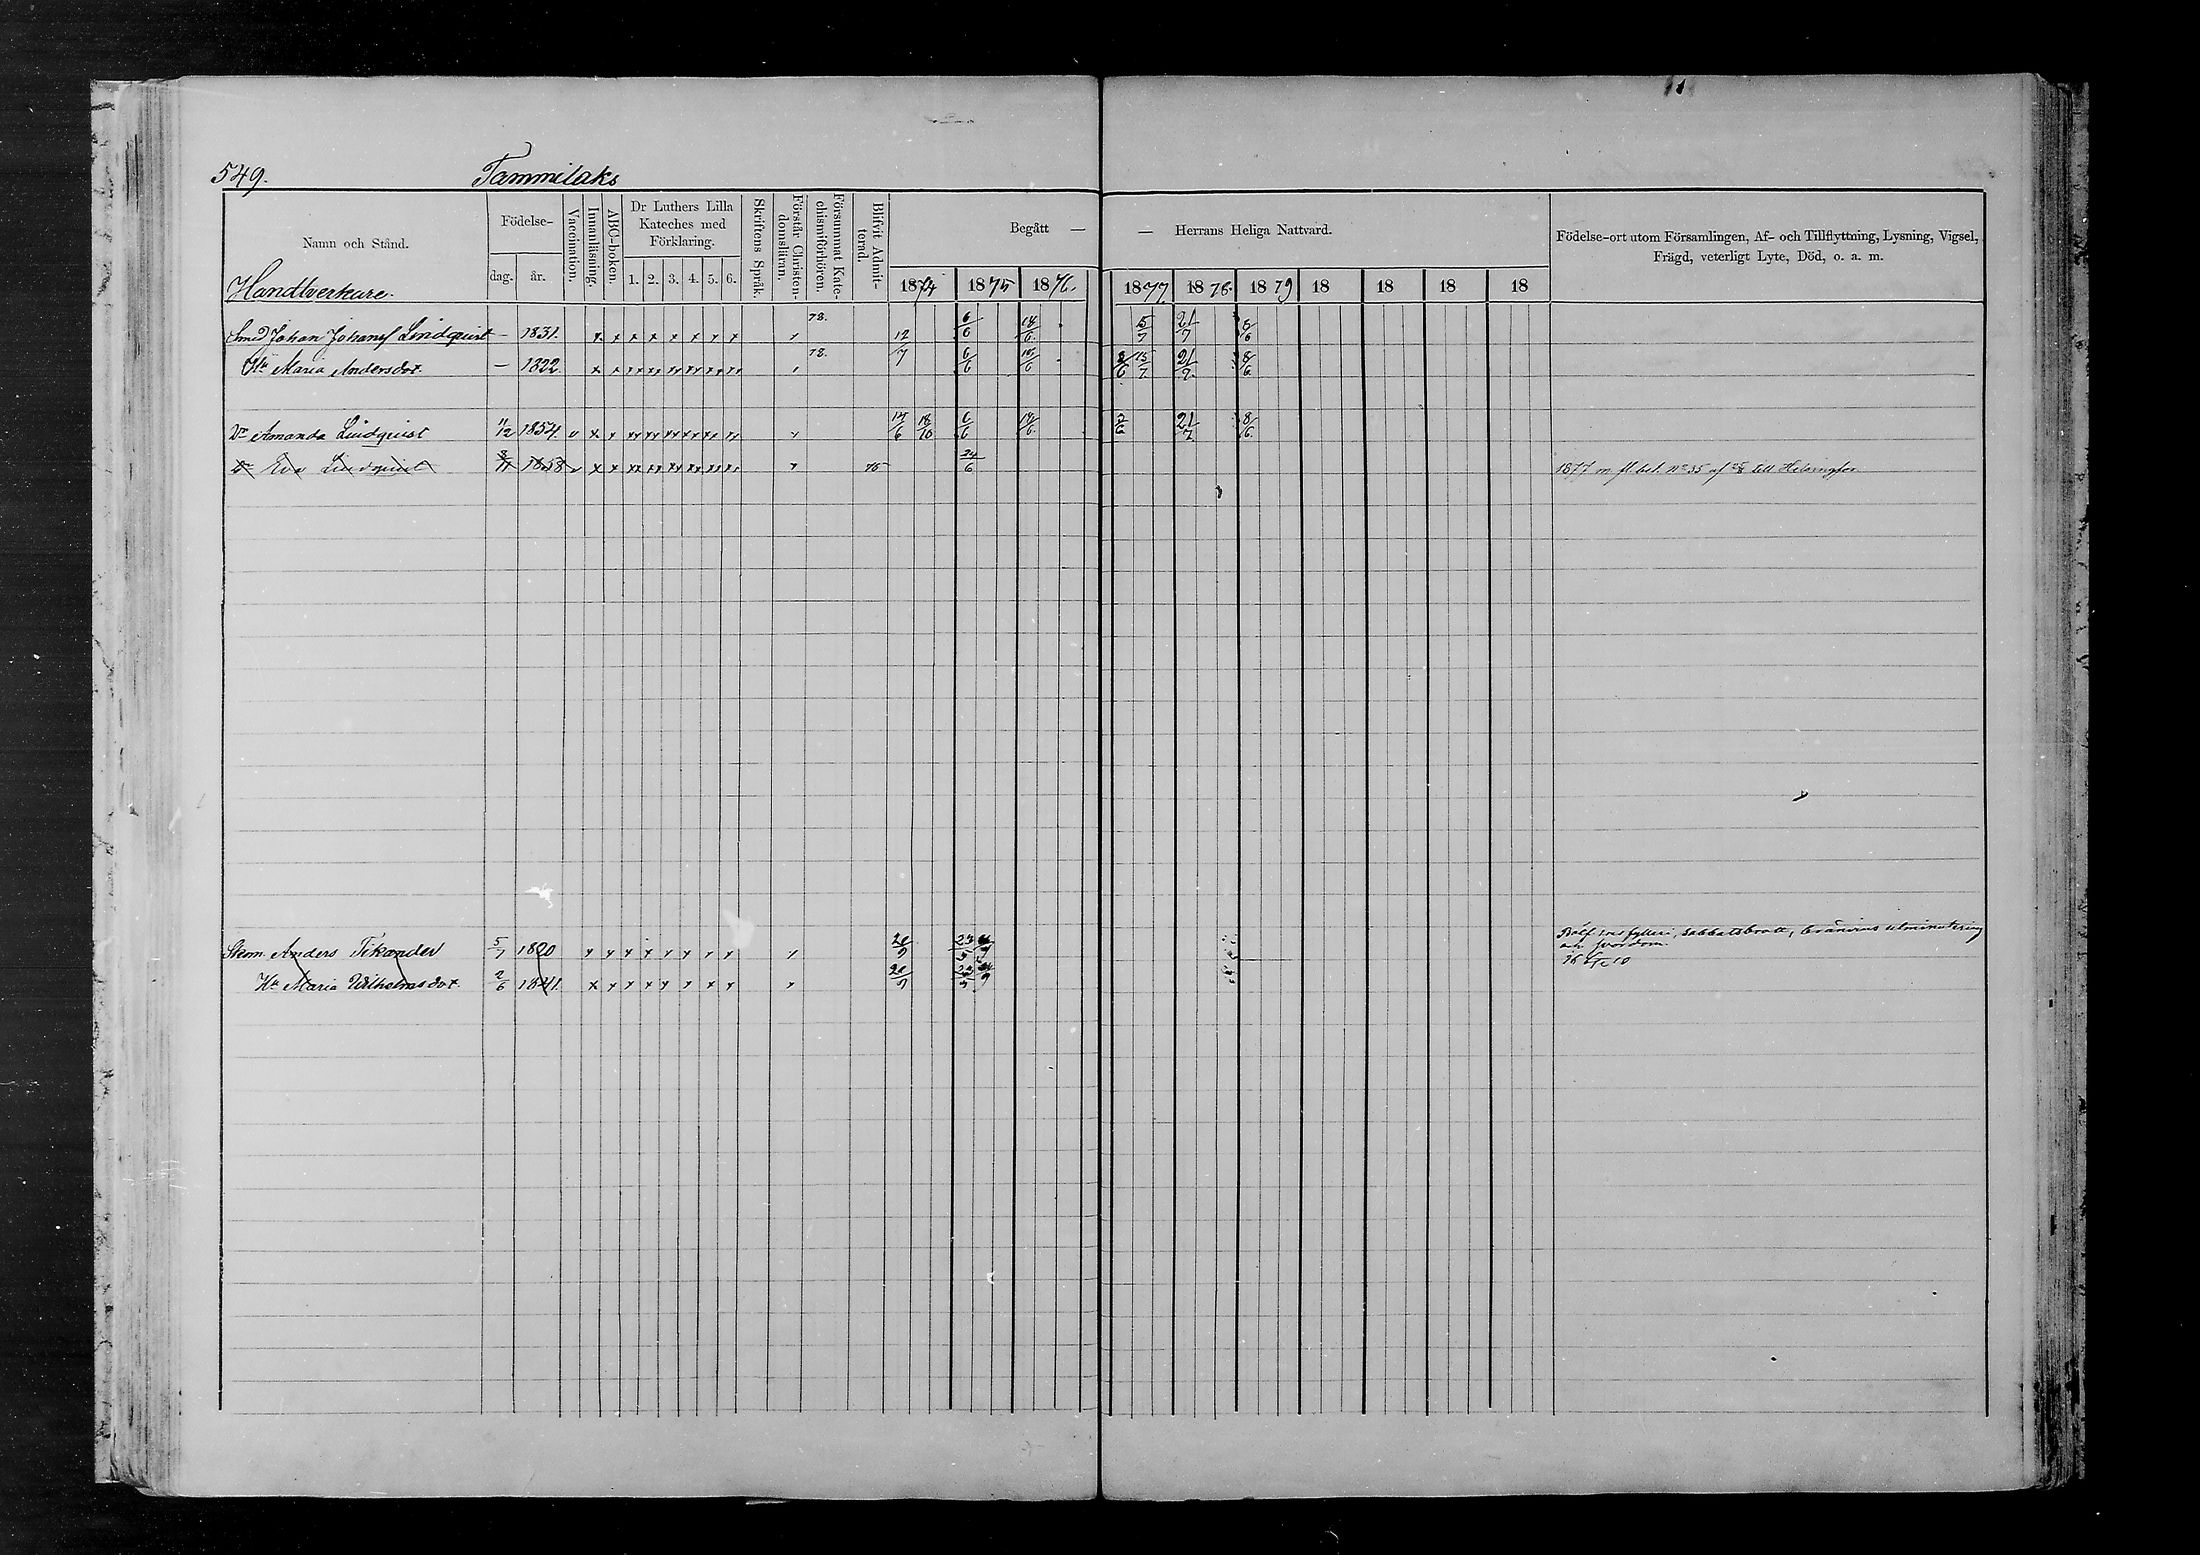 549. Tammilaks
Namn och Stånd.
Födelse-
dag. år.
Vaccination.
Innanläsning.
ABC-boken.
Dr Luthers Lilla Kateches med Förklaring.
1. 2. 3. 4. 5. 6.
Skriftens Språk.
Förstår Christendomsläran.
Försummat Katechismiförhören.
Blifvit Admitterad.
Begått — — Herrans Heliga Nattvard.
1874 1875 1876. 1877. 1878. 1879 18 18 18 18
Födelse-ort utom Församlingen, Af- och Tillflyttning, Lysning, Vigsel,
Frägd, veterligt Lyte, Död, o. a. m.
Handtverkare.
Smed Johan Johansf Lindquist — 1831. x x x x x x x x x 78. 12/7 6/6 18/6 15/7 21/7 8/6
Hu Maria Andersdot — 1822. 78. 6/6 18/6 15/7 21/7 8/6
Dr Amanda Lindquist 11/12 1854. v 14/6 18/10 6/6 18/6 21/7 8/6
Dr Eva Lindquist 1858 v 75 24/6 1877 m fl. bet. No 35 af till Helsingfors
sabbatsbrott, bränvins utminutering
och svordom.
Anders Tikander 5/7 1820 x x x x x x x x x
Hu Maria Wilhelmsdot 2/6 1841. x x x x x x x x x